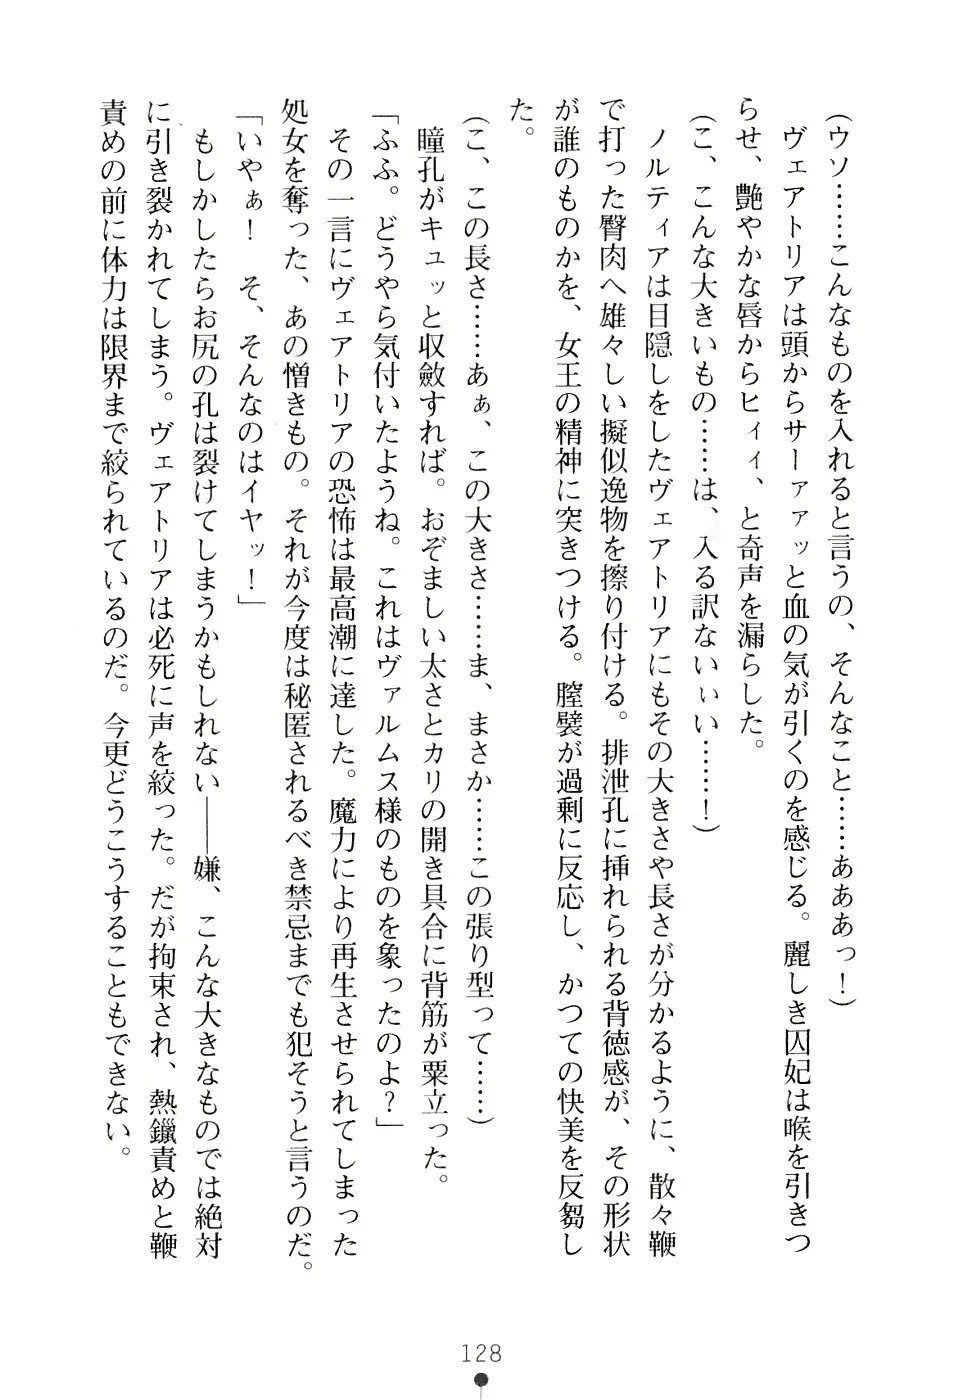 (ウソ……こんなものを入れると言うの、そんなこと……あああっ！)
　ヴェアトリアは頭からサーァァッと血の気が引くのを感じる。麗しき囚妃は喉を引きつ
らせ、艶やかな唇からヒィィ、と奇声を漏らした。
(こ、こんな大きいもの……は、入る訳ないぃい……！)
　ノルティアは目隠しをしたヴェアトリアにもその大きさや長さが分かるように、散々鞭
で打った臀肉へ雄々しい擬似逸物を擦り付ける。排泄孔に挿れられる背徳感が、その形状
が誰のものかを、女王の精神に突きつける。膣襞が過剰に反応し、かつての快美を反芻し
た。
(こ、この長さ……あぁ、この大きさ……ま、まさか……この張り型って……)
　瞳孔がキュッと収斂すれば。おぞましい太さとカリの開き具合に背筋が粟立った。
「ふふ。どうやら気付いたようね。これはヴァルムス様のものを象ったのよ？」
　その一言にヴェアトリアの恐怖は最高潮に達した。魔力により再生させられてしまった
処女を奪った、あの憎きもの。それが今度は秘匿されるべき禁忌までも犯そうと言うのだ。
「いやぁ！　そ、そんなのはイヤッ！」
　もしかしたらお尻の孔は裂けてしまうかもしれない――嫌、こんな大きなものでは絶対
に引き裂かれてしまう。ヴェアトリアは必死に声を絞った。だが拘束され、熱鑞責めと鞭
責めの前に体力は限界まで絞られているのだ。今更どうこうすることもできない。
128